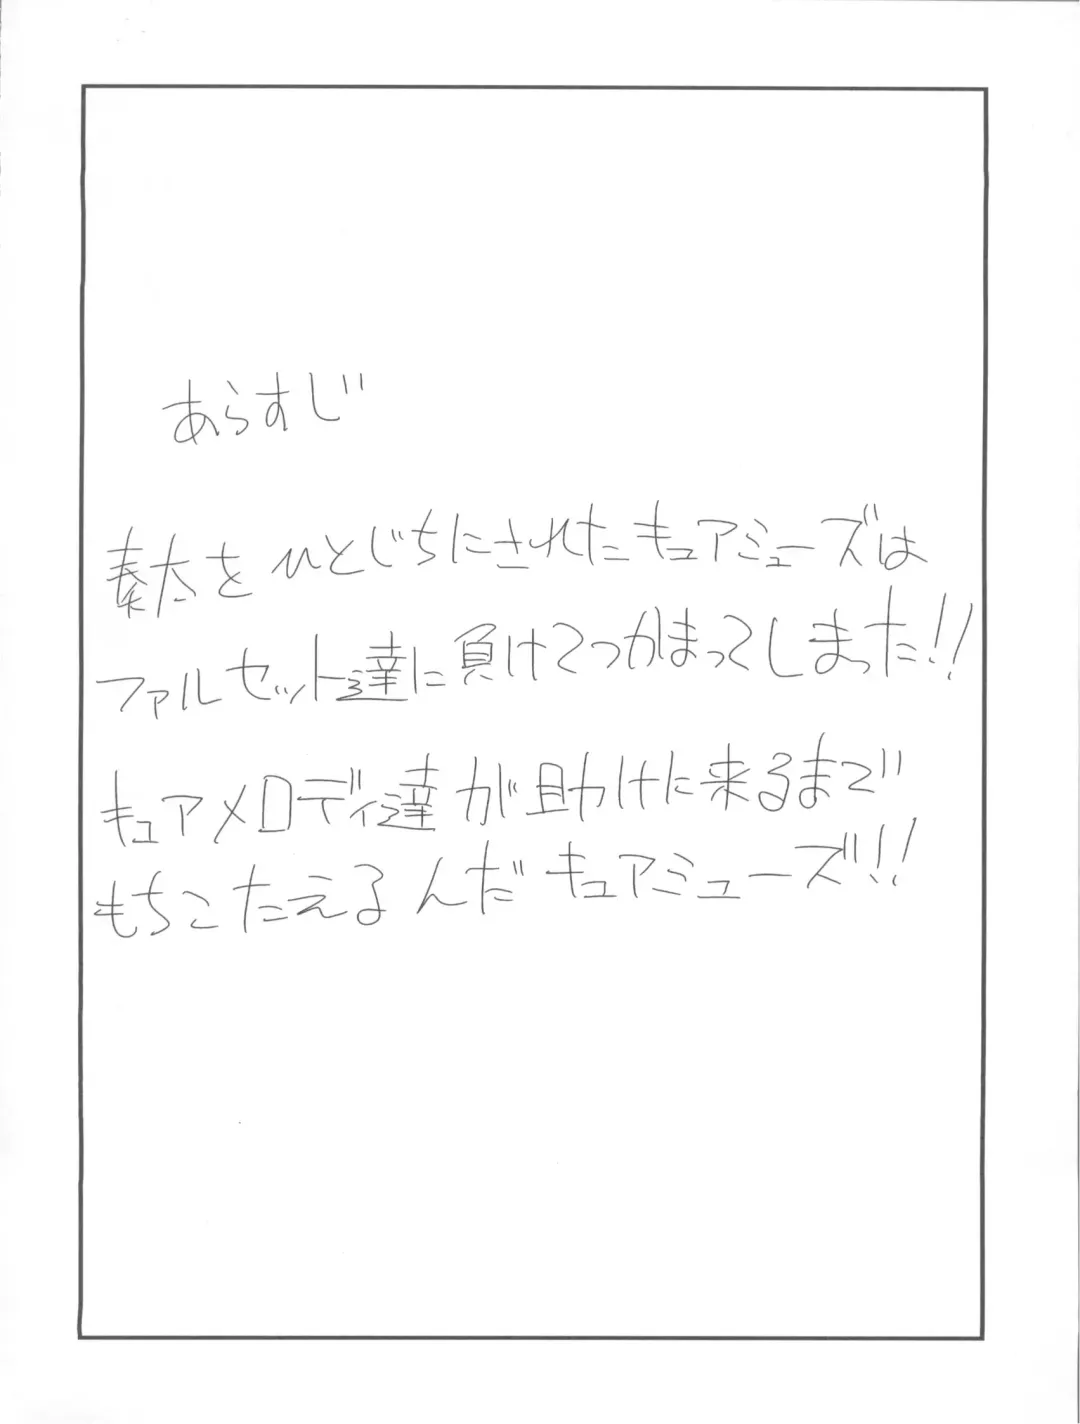 あらすじ
奏太をひとじちにされたキュアミューズは
ファルセット達に負けてつかまってしまった!!
キュアメロディ達が助けに来るまで
もちこたえるんだキュアミューズ!!